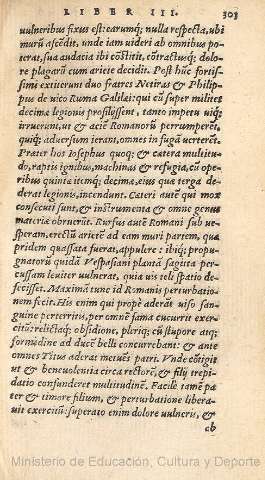 LIBER III. 303
vulneribus fixus est: earumq; nulla respecta, ubi
murũ ascẽdit, unde iam uideri ab omnibus po=
terat, sua audacia ibi cõstitit, cõtractusq; dolo=
re plagarũ cum ariete decidit. Post hũc fortis=
simi extiterunt duo fratres Netiras & Philip=
pus de uico Ruma Galilæi: qui cũ super milites
decimæ legionis prosilijssent, tanto impetu uiq;
irruerunt, ut & aciẽ Romanorũ perrumperẽt,
quiq; aduersum ierant, omnes in fugã uerterẽt.
Præter hos Iosephus quoq; & cætera multitu=
do, raptis ignibus, machinas & refugia, cũ ope=
ribus quintæ itemq; decimæ, eius quæ terga de=
derat legionis, incendunt. Cæteri autẽ qui mox
consecuti sunt, & instrumenta & omne genus
materiæ obruerũt. Rursus autẽ Romani sub ue=
speram, erectũ arietẽ ad eam muri partem, quæ
pridem quassata fuerat, appulere: ibiq; propu=
gnatorũ quidã Vespasiani plantã sagitta per=
cussam leuiter uulnerat, quia uis teli spatio de=
fecisset. Maximã tunc id Romanis perturbatio=
nem fecit. His enim qui prope aderãt uiso san=
guine perterritis, per omnẽ fama cucurrit exer=
citũ: relictaq; obsidione, pleriq; cũ stupore atq;
formidine ad ducẽ belli concurrebant: & ante
omnes Titus aderat metuẽs patri. Vnde cõtigit
ut & beneuolentia circa rectorẽ, & filij trepi=
datio confunderet multitudinẽ. Facilè tamẽ pa=
ter & timore filium, & perturbatione libera=
uit exercitũ: superato enim dolore uulneris, &
ob
Ministerio de Educación, Cultura y Deporte